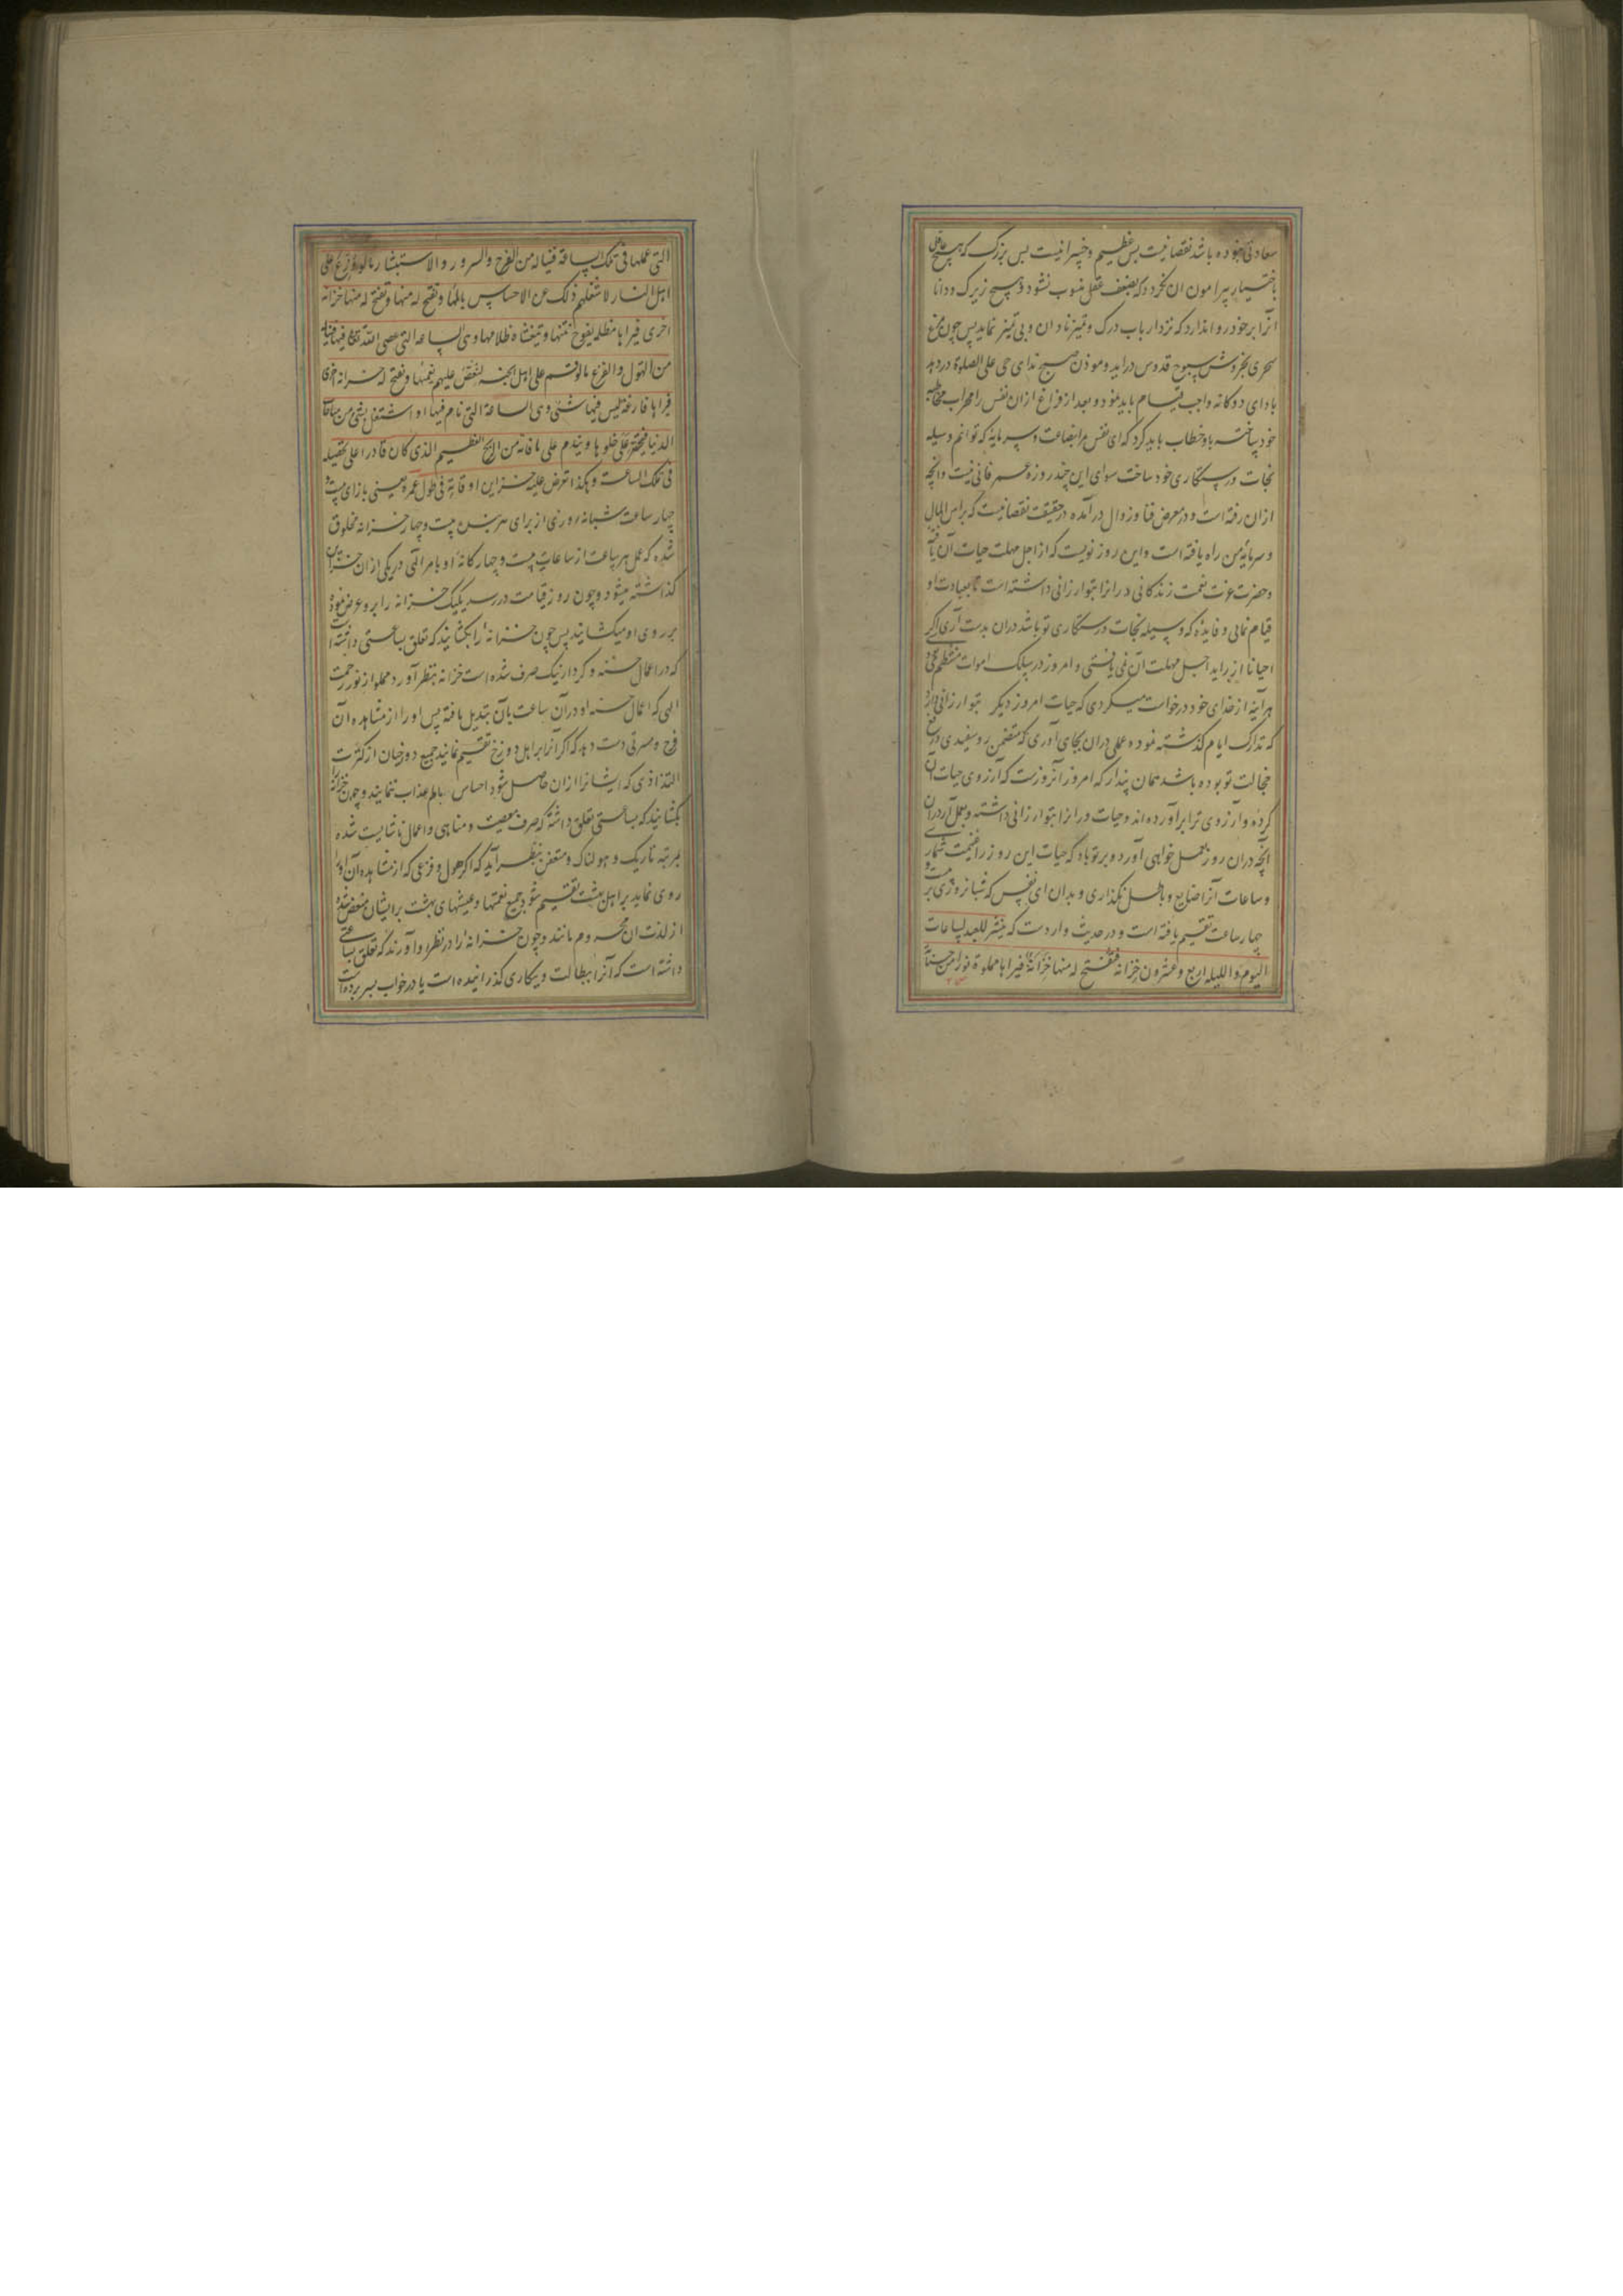 سعادتی نموده باشد نقصانیست بس عظیم و خسرانیست بس بزرگ که هیچ عاقلی
باختیار پیرامون ان نکردد که بضعف عقل منسوب نشود و هیچ زیرک و دانا
انرا بر خود روا ندارد که نزد ارباب درک و تمیز نادان و بی تمیز نماید پس چون مرغ
سحری بخروش سبوح قدوس دراید و موذن صبح ندای حی علی الصلوة در دهد
بادای دوکانه واجب قیام باید نمود و بعد از فراغ ازان نفس را محراب مخاطبه
خود ساخته باو خطاب باید کرد که ای نفس مرا بضاعت و سرمایه که توانم وسیله
نجات و رستکاری خود ساخت سوای این چند روزه عمر فانی نیست و انچه
ازان رفته است و در معرض فنا و زوال در آمده در حقیقت نقصانیست که براس المال
و سرمایه من راه یافته است و این روز نویست که از اجل مهلت حیات آن یافته
و حضرت عزت نعمت زندکانی در انرا بتو ارزانی داشته است تا بعبادت او
قیام نمائی و فایده که وسیله نجات و رستکاری تو باشد دران بدست آری اکر
احیانا از براید اجل مهلت آن نمی یافتی و امروز در سلک اموات منتظم میشدی
هر آینه از خدای خود درخواست میکردی که حیات امروز دیکر بتو ارزانی دارد
که تدارک ایام کذشته نموده عملی دران بجای آوری که متضمن رو سفیدی و رفع
خجالت تو بوده باشد همان پندار که امروز آنروزست که آرزوی حیات آن
کرده و آرزوی ترا برآورده اند و حیات در انرا بتو ارزانی داشته و بعمل آر دران
آنچه دران روز بعمل خواهی آورد و بر تو باد که حیات این روز را غنیمت شماری
و ساعات آنرا ضایع و باطل نکذاری و بدان ای نفس که شبانروزی بر بیست و
چهار ساعت تقسیم یافته است و در حدیث واردست که ینشر للعبد لساعات
الیوم و اللیله اربع و عشرون خزانه فتفتح له منها خزانة فیراها مملوة نورا من حسناته
التی عملها فی تلک الساعة فیناله من الفرح والسرور والاستبشار ما لو وزع علی
اهل النار لاشغلهم ذلک عن الاحساس بالمها و تفتح له منها و تفتح له منها خزانة
اخری فیراها مظلمه یفوح نتنها و یتغشاه ظلامها و هی الساعه التی عصی الله تعالی فیها فیناله
من الهول و الفزع ما لو قسم علی اهل الجنه لنغص علیهم نعیمها و تفتح له خزانه اخری
فیراها فارغة لیس فیها شئی و هی الساعة التی نام فیها او اشتغل بشئ من مباحات
الدنیا فیتحسر علی خلوها و یندم علی ما فاته من الربح العظیم الذی کان قادرا علی تحصیله
فی تلک الساعت و هکذا تعرض علیه خزاین اوقاته فی طول عمره یعنی بازای بیست و
چهار ساعت شبانه روزی از برای هر کس بیست و چهار خزانه مخلوق
شده که عمل هر ساعت از ساعات بیست و چهار کانه او بامر الهی در یکی از ان خزاین
کذاشته میشود و چون روز قیامت در رسد یکیک خزانه را برو عرض نموده
بر روی او میکشایند پس چون خزانه را بکشایند که تعلق بساعتی داشته است
که در اعمال حسنه و کردار نیک صرف شده است خزانه بنظر آورد مملو از نور رحمت
الهی که اعمال حسنه او درآن ساعت بآن تبدیل یافته پس او را از مشاهده آن
فرح و مسرتی دست دهد که اکر آنرا بر اهل دوزخ تقسیم نمایند جمیع دوزخیان از کثرت
التذاذی که ایشانرا ازان حاصل شود احساس بالم عذاب ننمایند و چون خزانه را
بکشایند که بساعتی تعلق داشته که صرف معصیت و مناهی و اعمال ناشایست شده
بمرتبه تاریک و هولناک و متعفن بنظر آید که اکر هول و فزعی که از مشاهده آن او را
روی نماید بر اهل بهشت تقسیم شود جمیع نعمتها و عیشهای بهشت بر ایشان منغص شده
از لذت ان محروم مانند و چون خزانه را در نظر او آورند که تعلق بساعتی
داشته است که آنرا ببطالت و بیکاری کذرانیده است یا در خواب بسر برده است